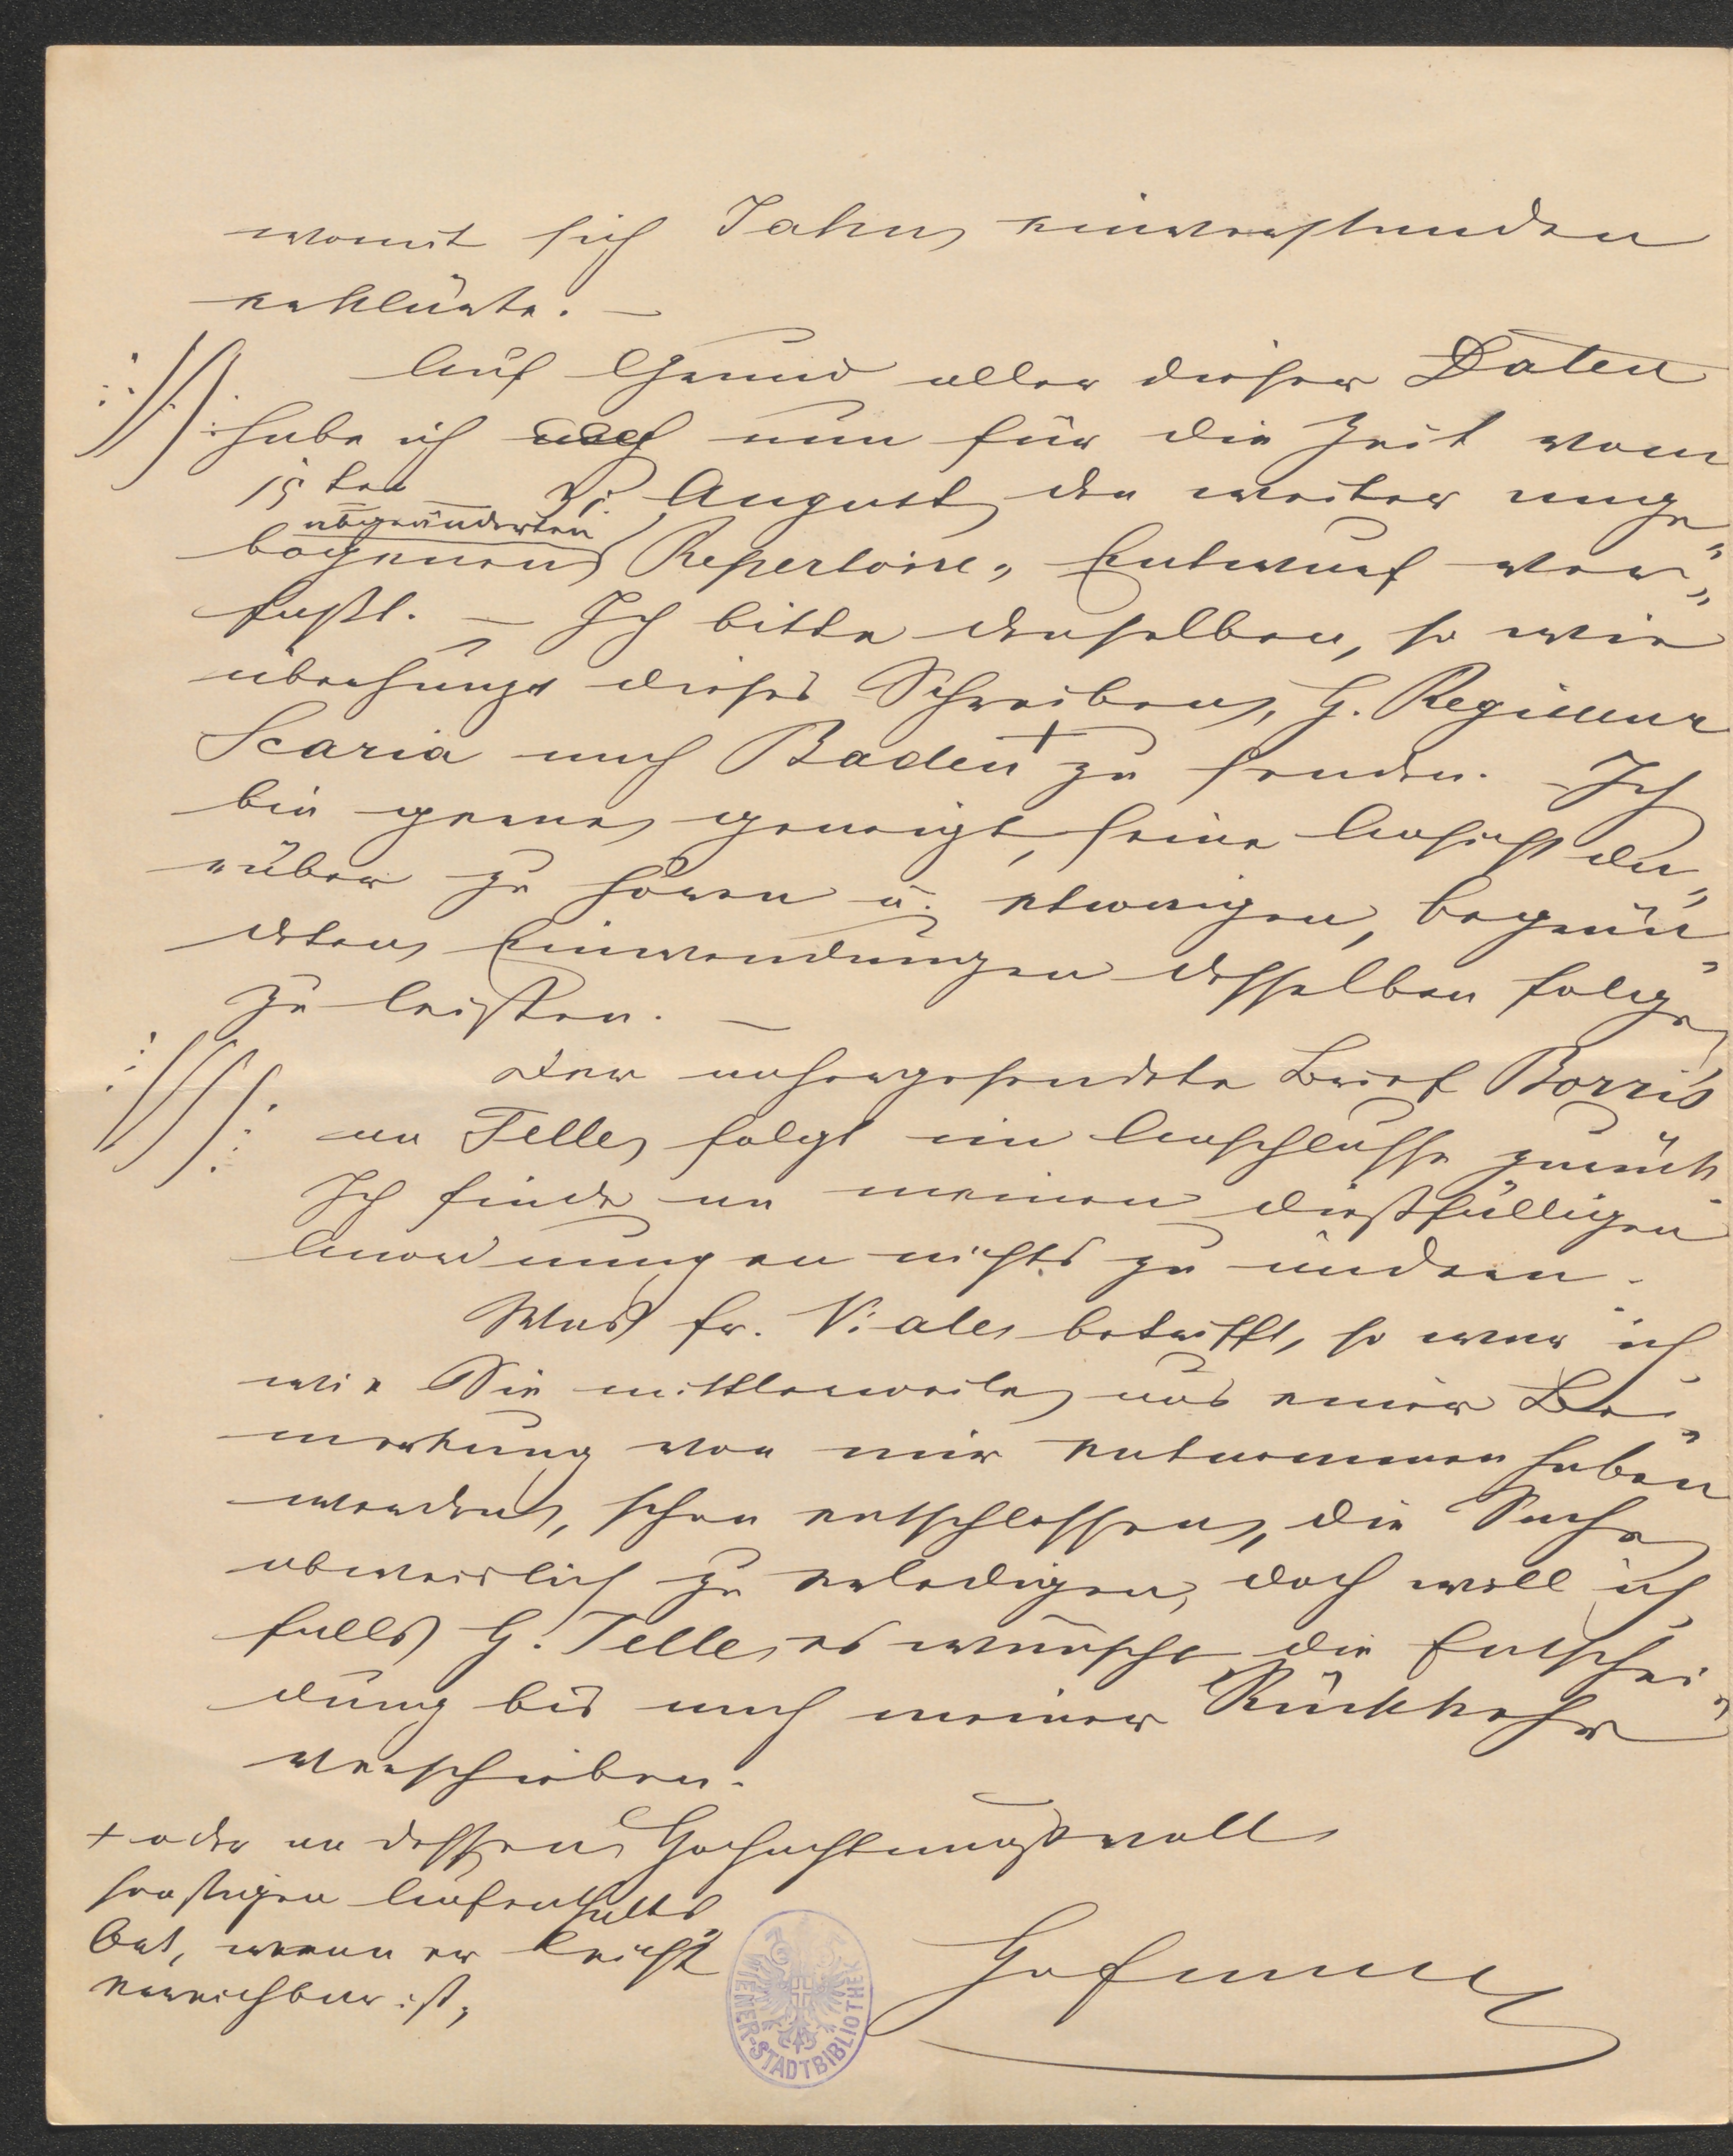 womit sich Jahn einverstanden
erklärte. –
Auf Grund aller dieser Daten
habe ich nun für die Zeit vom
15ten – 31 August den weiter ange„
abgeänderten
bogenen Repertoire„ Entwurf ver„
faßt. – Ich bitte denselben, so wie
überhaupt dieses Schreiben, H. Regisseur
Scaria nach Baden + zu senden. – Ich
bin gerne geneigt, seine Ansicht da„
rüber zu hören u. etwaigen, begrün„
deten Einwendungen desselben folge
zu leisten. –
Der anhergesendete Brief Borris
an Telle folgt im Anschlusse zurück.
Ich finde an meinen dießfälligen
Anordnungen nichts zu ändern.
Was Fr. Viale betrifft, so war ich,
wie Sie mittlerweile aus einer Be„
merkung von mir entnommen haben
werden, schon entschlossen, die Sache
abweislich zu erledigen, doch will ich,
falls H. Telle es wünscht die Entschei„
dung bis nach meiner Rückkehr
verschieben.
Hochachtungsvoll
+ oder an dessen
sonstigen Aufenthalts„
Ort, wenn er leicht
erreichbar ist,
Hofmann
WIENER-STADTBIBLIOTHEK